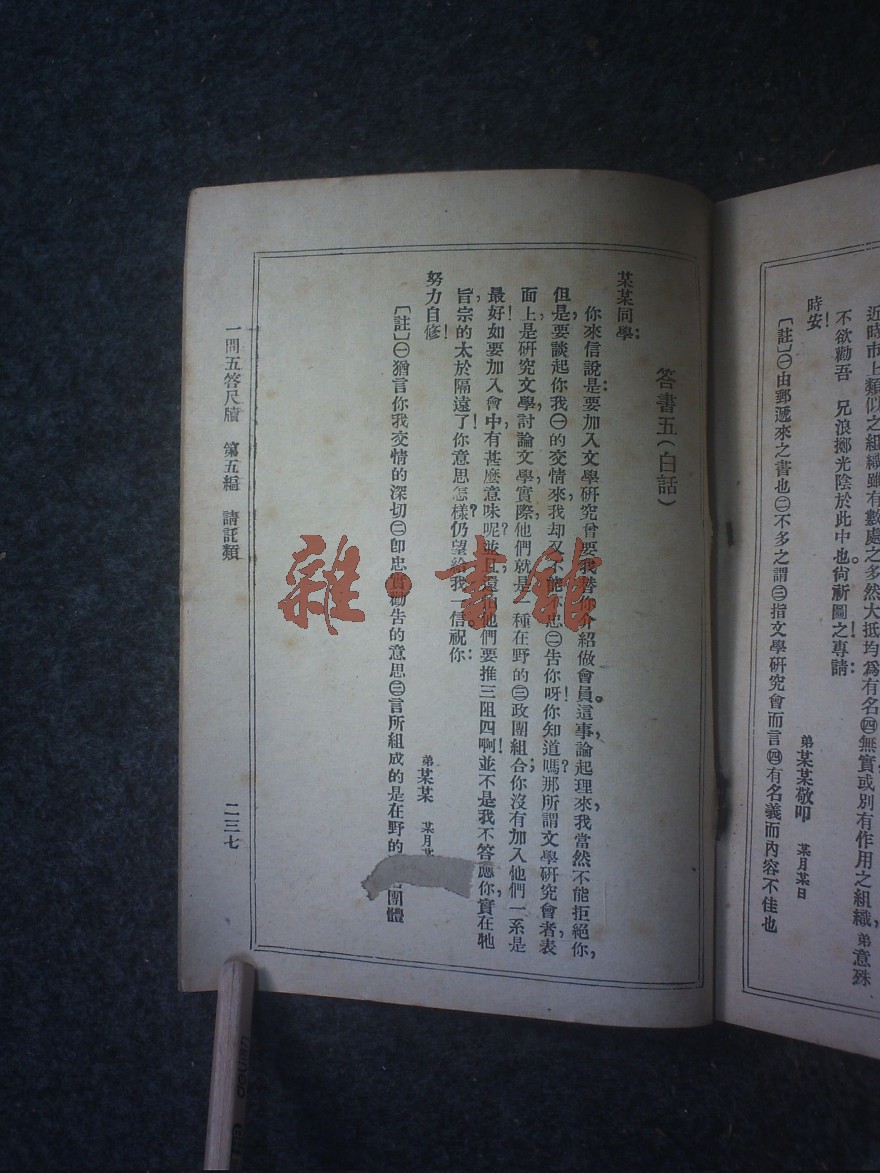 近時市上類似之組織雖有數處之多然大抵均爲有名㊃無實或別有作用之組織，弟意殊
不欲勸吾　兄浪擲光陰於此中也。尙祈圖之！專請：
時安！
弟某某敬叩　某月某日
〔註〕㊀由郵遞來之書也㊁不多之謂㊂指文學研究會而言㊃有名義而內容不佳也
答書五（白話）
某某同學：
你來信說是：要加入文學研究曾要我替你介紹做會員。這事論起理來，我當然不能拒絕你，
但是，要談起你我㊀的交情來，我却又不能不忠㊁告你呀！你知道嗎？那所謂文學研究會者，表
面上是研究文學，討論文學，實際，他們就是一種在野的㊂政團組合；你沒有加入他們一系是
最好！如要加入會中有甚麼意味呢？並且還怕他們要推三阻四啊！並不是我不答應你，實在牠
旨宗的太於隔遠了！你意思怎樣？仍望給我一信。祝你：
努力自修！
弟某某　某月
〔註〕㊀猶言你我交情的深切㊁卽忠實勸告的意思㊂言所組成的是在野的 團體
一問五答尺牘　第五編　請託類
二三七
雜·書館